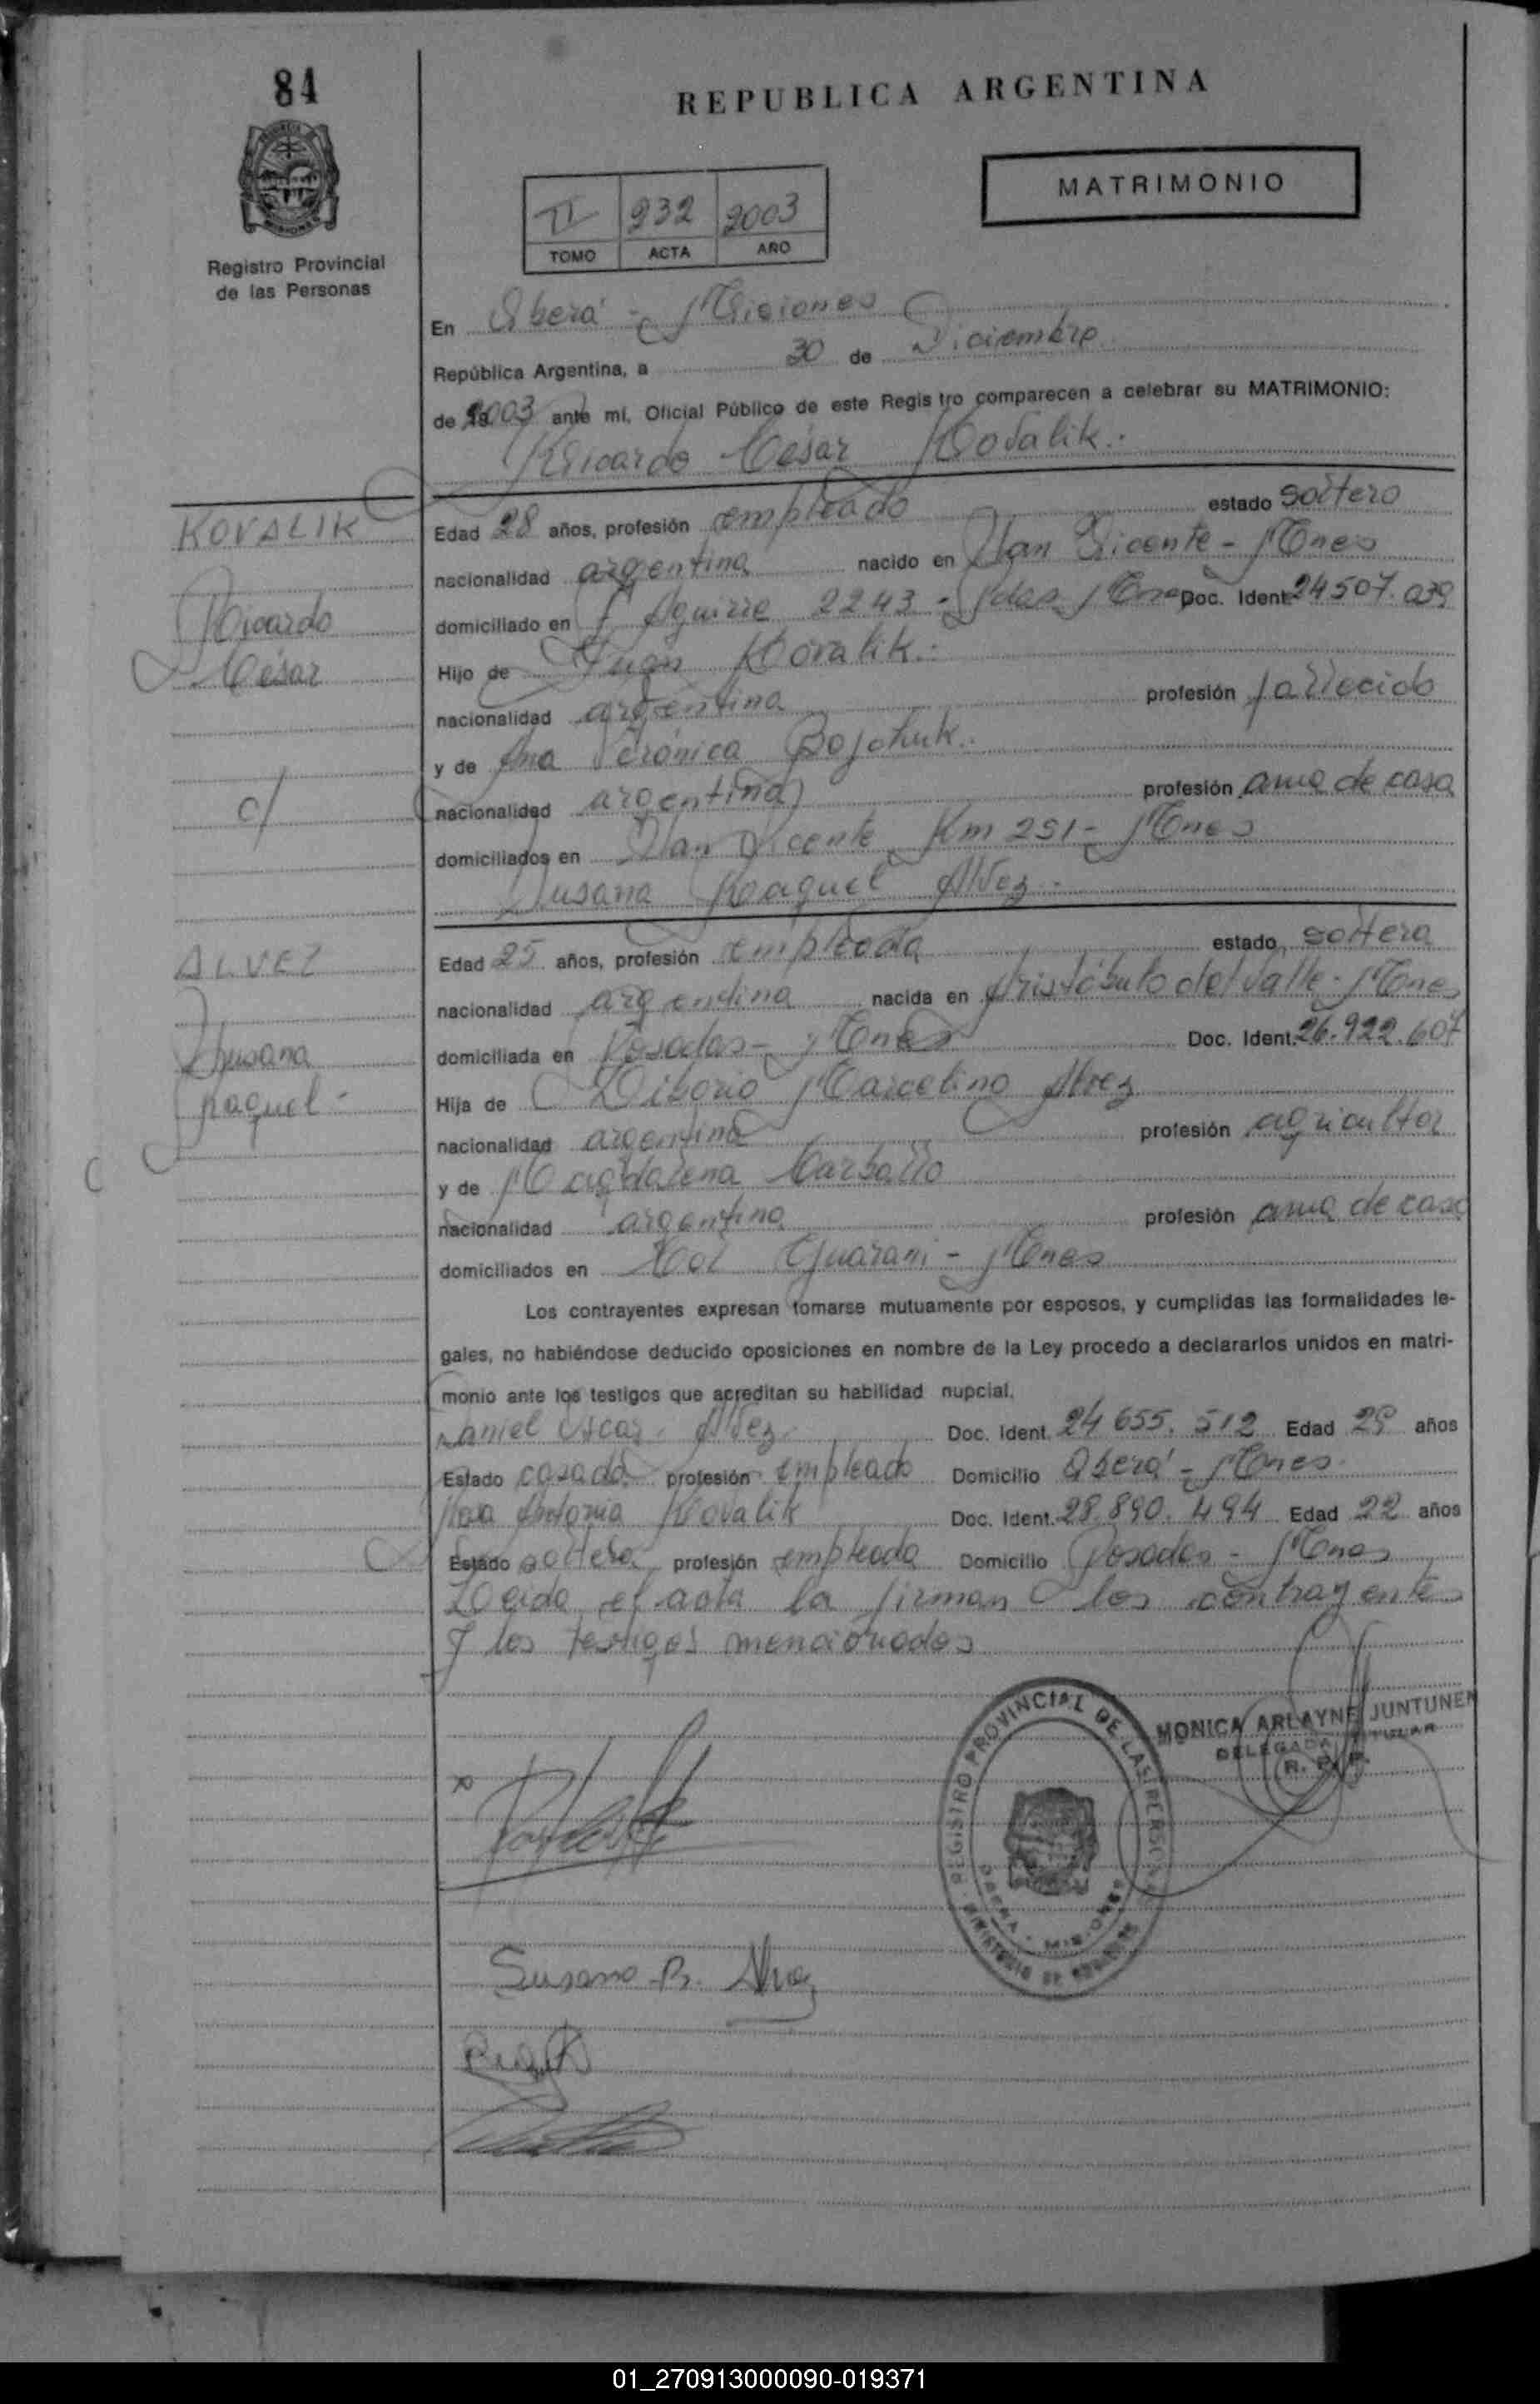 84
REPUBLICA ARGENTINA
MATRIMONIO
II 232 2003
TOMO ACTA AÑO
Registro Provincial
de las Personas
En Oberá - Misiones
República Argentina, a 30 de Diciembre
de 2003 ante mí, Oficial Público de este Registro comparecen a celebrar su MATRIMONIO:
Ricardo César Kovalik.-
KOVALIK
Ricardo
César
c/
ALVEZ
Susana
Raquel -
Edad 28 años, profesión empleado estado soltero
nacionalidad argentina nacido en San Vicente - Mnes
domiciliado en F. Aguirre 2243 - Pdas Mnes Doc. Ident. 24507.039
Hijo de Juan Kovalik.-
nacionalidad argentina profesión fallecido
y de Ana Verónica Bojchuk.-
nacionalidad argentina profesión ama de casa
domiciliados en San Vicente Km 251 - Mnes
Susana Raquel Alvez -
Edad 25 años, profesión empleada estado soltera
nacionalidad argentina nacida en Aristóbulo del Valle - Mnes
domiciliada en Posadas - Mnes Doc. Ident. 26.922.607
Hija de Liborio Marcelino Alvez
nacionalidad argentina profesión agricultor
y de Magdalena Carballo
nacionalidad argentina profesión ama de casa
domiciliados en Guaraní - Mnes
Los contrayentes expresan tomarse mutuamente por esposos, y cumplidas las formalidades le-
gales, no habiéndose deducido oposiciones en nombre de la Ley procedo a declararlos unidos en matri-
monio ante los testigos que acreditan su habilidad nupcial.
Daniel Oscar Alvez Doc. Ident. 24 655. 512 Edad 28 años
Estado casado profesión empleado Domicilio Oberá - Mnes.
Rosa Antonia Kovalik Doc. Ident. 28.890.494 Edad 22 años
Estado soltera profesión empleada Domicilio Posadas - Mnes
Leída el acta la firman los contrayentes
y los testigos mencionados
MONICA ARLAYNE JUNTUNEN
DELEGADA TITULAR
R. P. P.
REGISTRO PROVINCIAL DE LAS PERSONAS
Susana R. Alvez
01_270913000090-019371